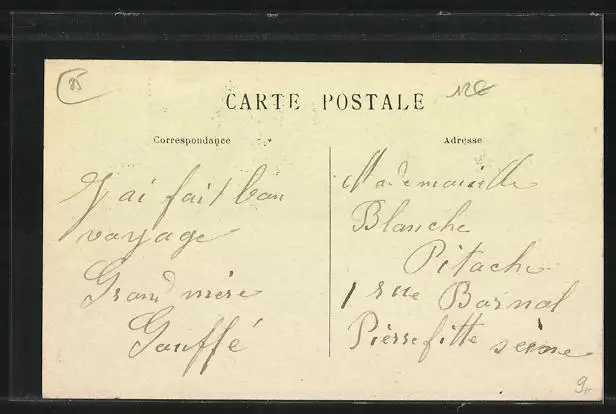 85
12€
CARTE POSTALE
Correspondance
J'ai fait bon
voyage
Grand mère
Gouffé
Adresse
Mademoiselle
Blanche
Pitache
1 rue Barnal
Pierrefitte seine